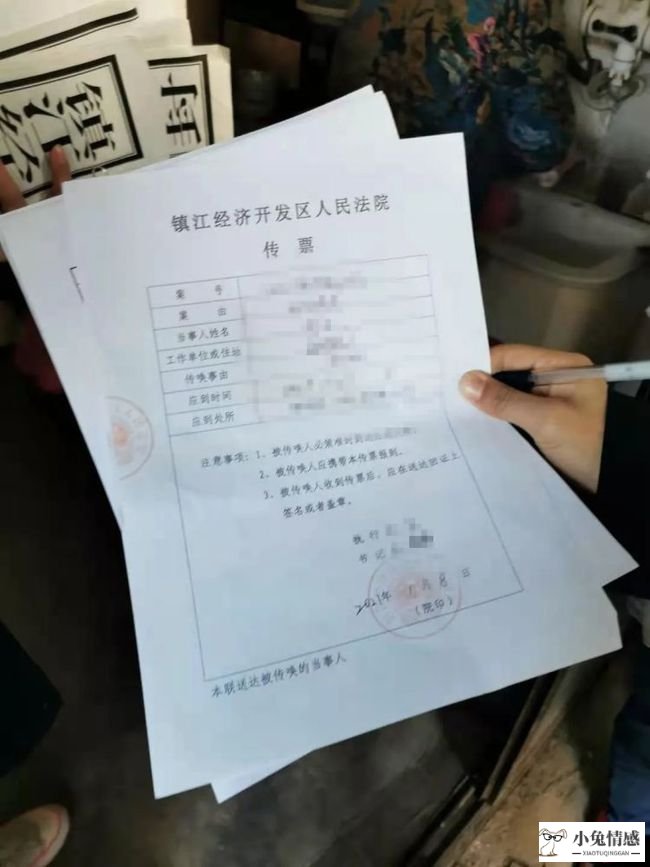 镇江经
镇江经济开发区人民法院
传 票
案 号
案 由
当事人姓名
工作单位或住地
传唤事由
应到时间
应到处所
注意事项：1、被传唤人必须准时到
2、被传唤人应携带本传票报到。
3、被传唤人收到传票后，应在送达回证上
签名或者盖章。
执行
书记
2021年 月8日
（院印）
本联送达被传唤的当事人
小兔情感
XIAOTUQINGGAN